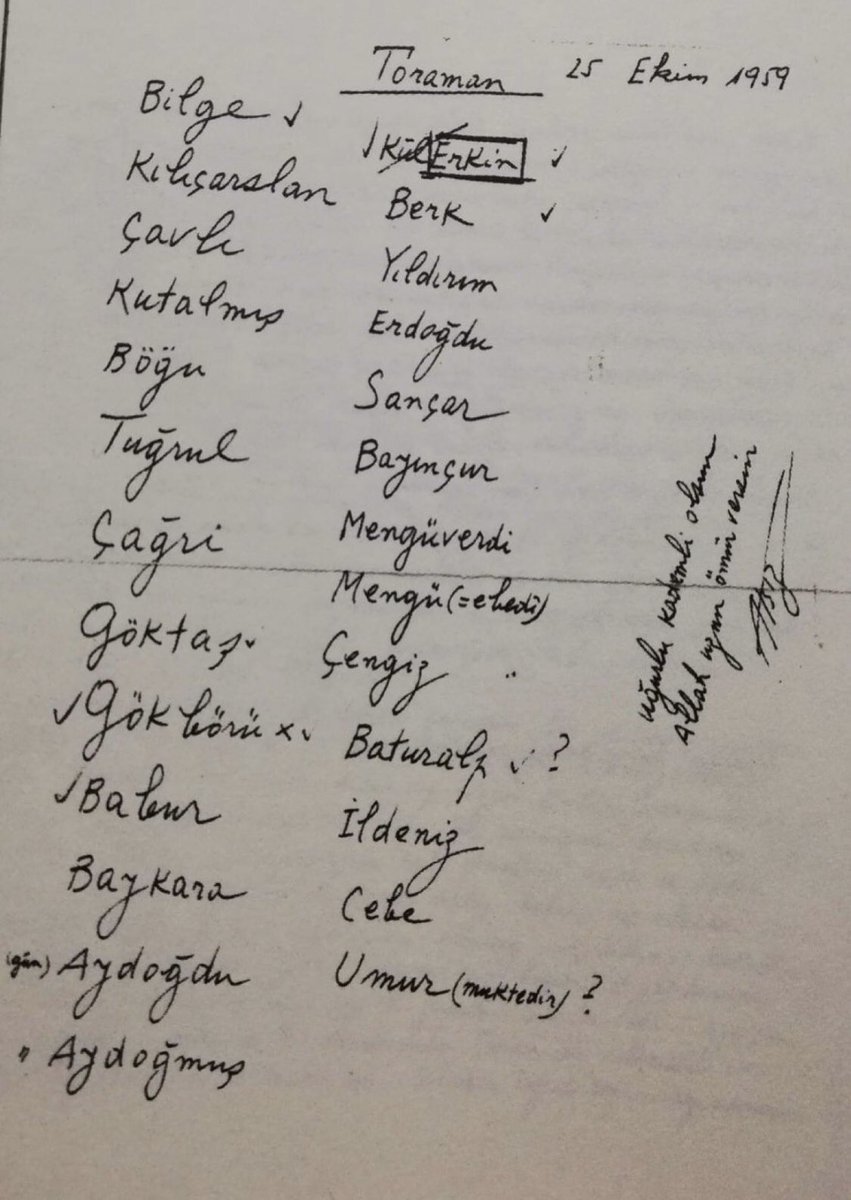 Toraman 25 Ekim 1959
Bilge ✓
Kılıçarslan
Çavlı
Kutalmış
Böğü
Tuğrul
Çağri
Göktaş
✓ Gökbörü x
✓ Babur
Baykara
(gün) Aydoğdu
" Aydoğmuş
✓ Kül Erkin ✓
Berk ✓
Yıldırım
Erdoğdu
Sançar
Bayınçur
Mengüverdi
Mengü (=ebedî)
Çengiz
Baturalp ✓ ?
İldeniz
Cebe
Umur (muktedir) ?
Uğurlu kademli olsun
Allah uzun ömür versin
Atsız